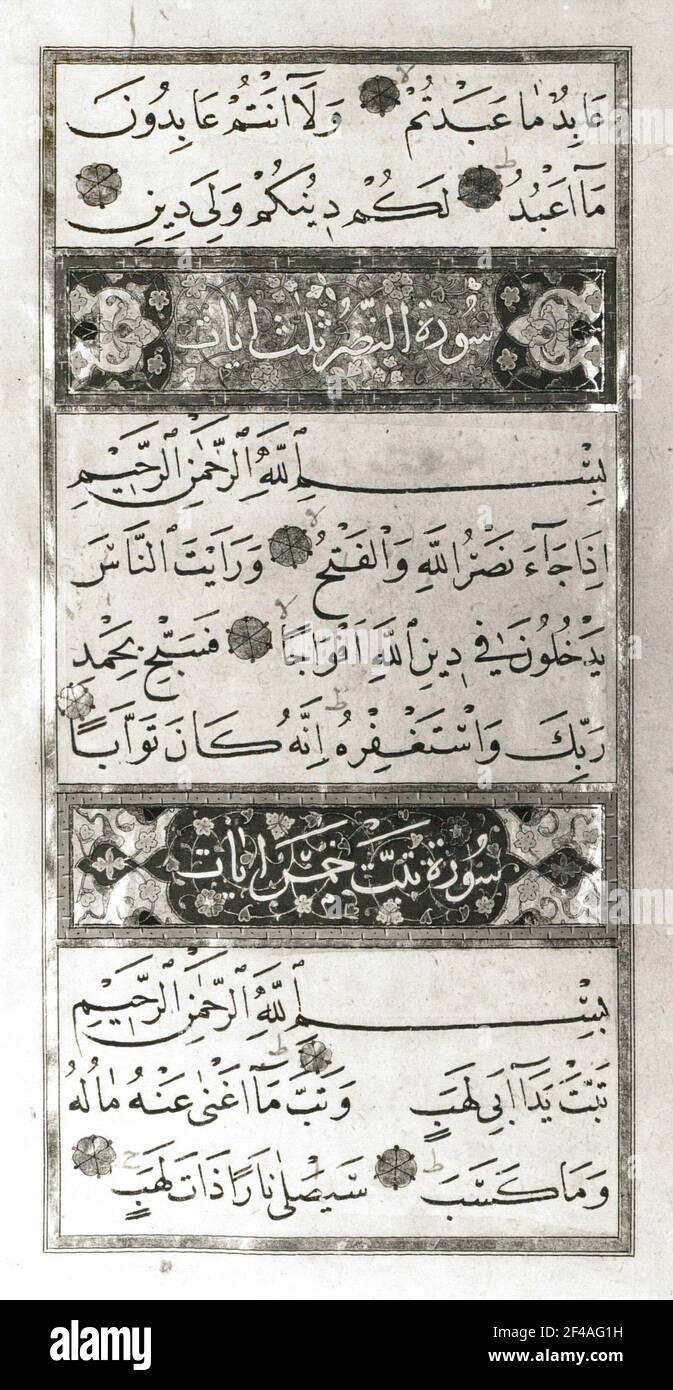 عَابِدٌ مَا عَبَدْتُمْ ۙ وَلَآ اَنْتُمْ عَابِدُونَ
مَآ اَعْبُدُ ۜ لَكُمْ دِينُكُمْ وَلِيَ دِينِ
سورة النصر ثلث ايات
بِسْمِ اللّٰهِ الرَّحْمٰنِ الرَّحِيمِ
اِذَا جَآءَ نَصْرُ اللّٰهِ وَالْفَتْحُ ۙ وَرَاَيْتَ النَّاسَ
يَدْخُلُونَ فِي دِينِ اللّٰهِ اَفْوَاجًا ۙ فَسَبِّحْ بِحَمْدِ
رَبِّكَ وَاسْتَغْفِرْهُ ط اِنَّهُ كَانَ تَوَّابًا
سورة تبت خمس ايات
بِسْمِ اللّٰهِ الرَّحْمٰنِ الرَّحِيمِ
تَبَّتْ يَدَآ اَبِي لَهَبٍ وَتَبَّ ط مَآ اَغْنٰى عَنْهُ مَالُهُ
وَمَا كَسَبَ ط سَيَصْلٰى نَارًا ذَاتَ لَهَبٍ ح
alamy
Image ID: 2F4AG1H
www.alamy.com